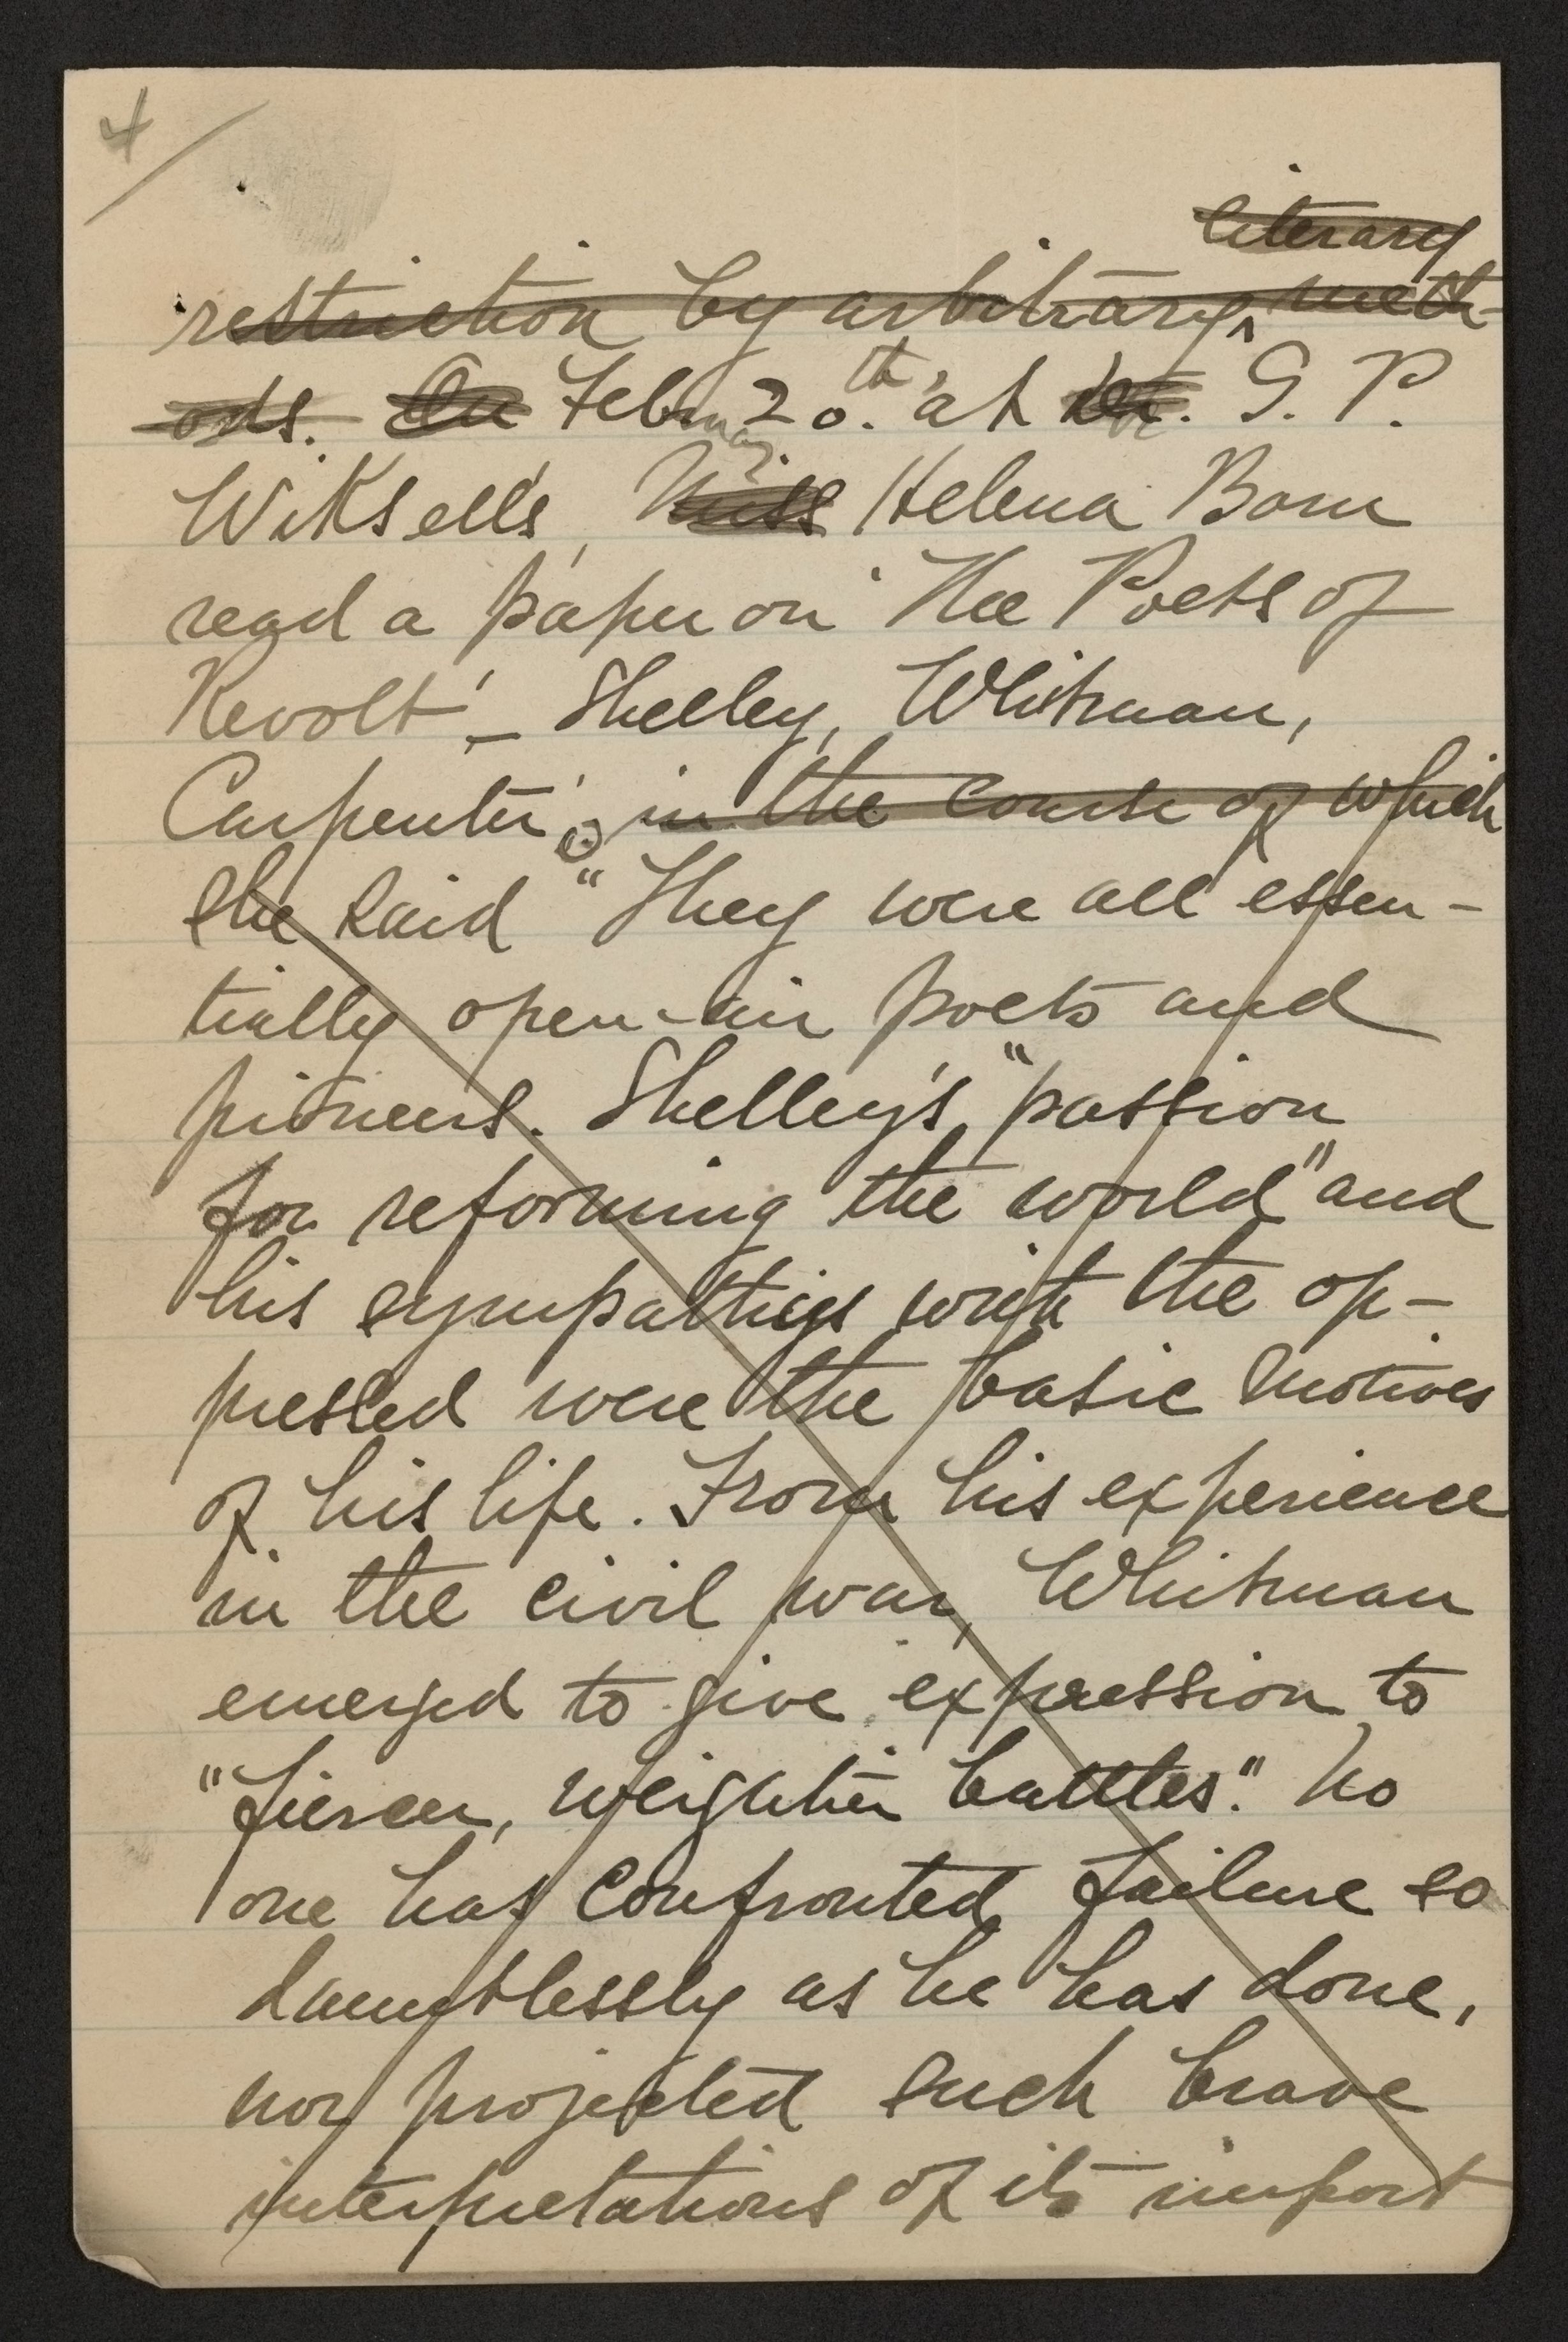 4/
literary
restriction by arbitrary meth-
ods. On Febru 20th. at Dr. G. P.
ary
Wiksell's, Miss Helena Born
read a paper on 'The Poets of
Revolt' – Shelley, Whitman,
Carpenter', in the course of which
she said "They were all essen-
tially open-air poets and
pioneers. Shelley's "passion
for reforming the world" and
his sympathies with the op-
pressed were the basic motives
of his life. From his experience
in the civil war, Whitman
emerged to give expression to
"fiercer, weightier battles." No
one has confronted failure so
dauntlessly as he has done,
nor projected such brave
interpretations of its import